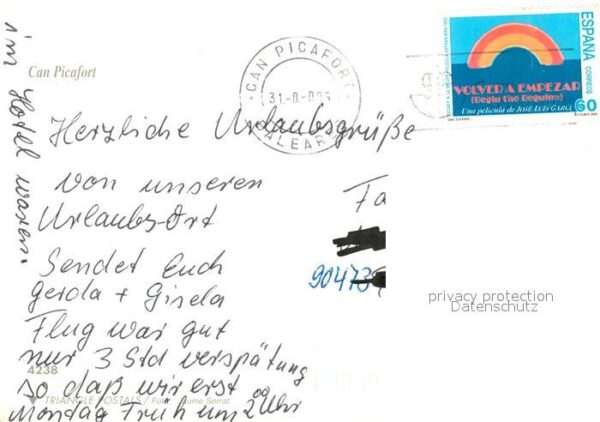 Can Picafort
CAN PICAFORT
BALEARES
ESPAÑA
CORREOS
VOLVER A EMPEZAR
(Begin the Beguine)
Una película de JOSÉ LUIS GARCI
60
Herzliche Urlaubsgrüße
von unseren
Urlaubs-Ort
Sendet Euch
gerda + Gisela
Flug war gut
nur 3 Std verspätung
so daß wir erst
Montag Früh um 2 00 Uhr
im Hotel waren.
Fa
90473
4238
TRIANGLE POSTALS / Foto: Jaume Serrat
privacy protection
Datenschutz